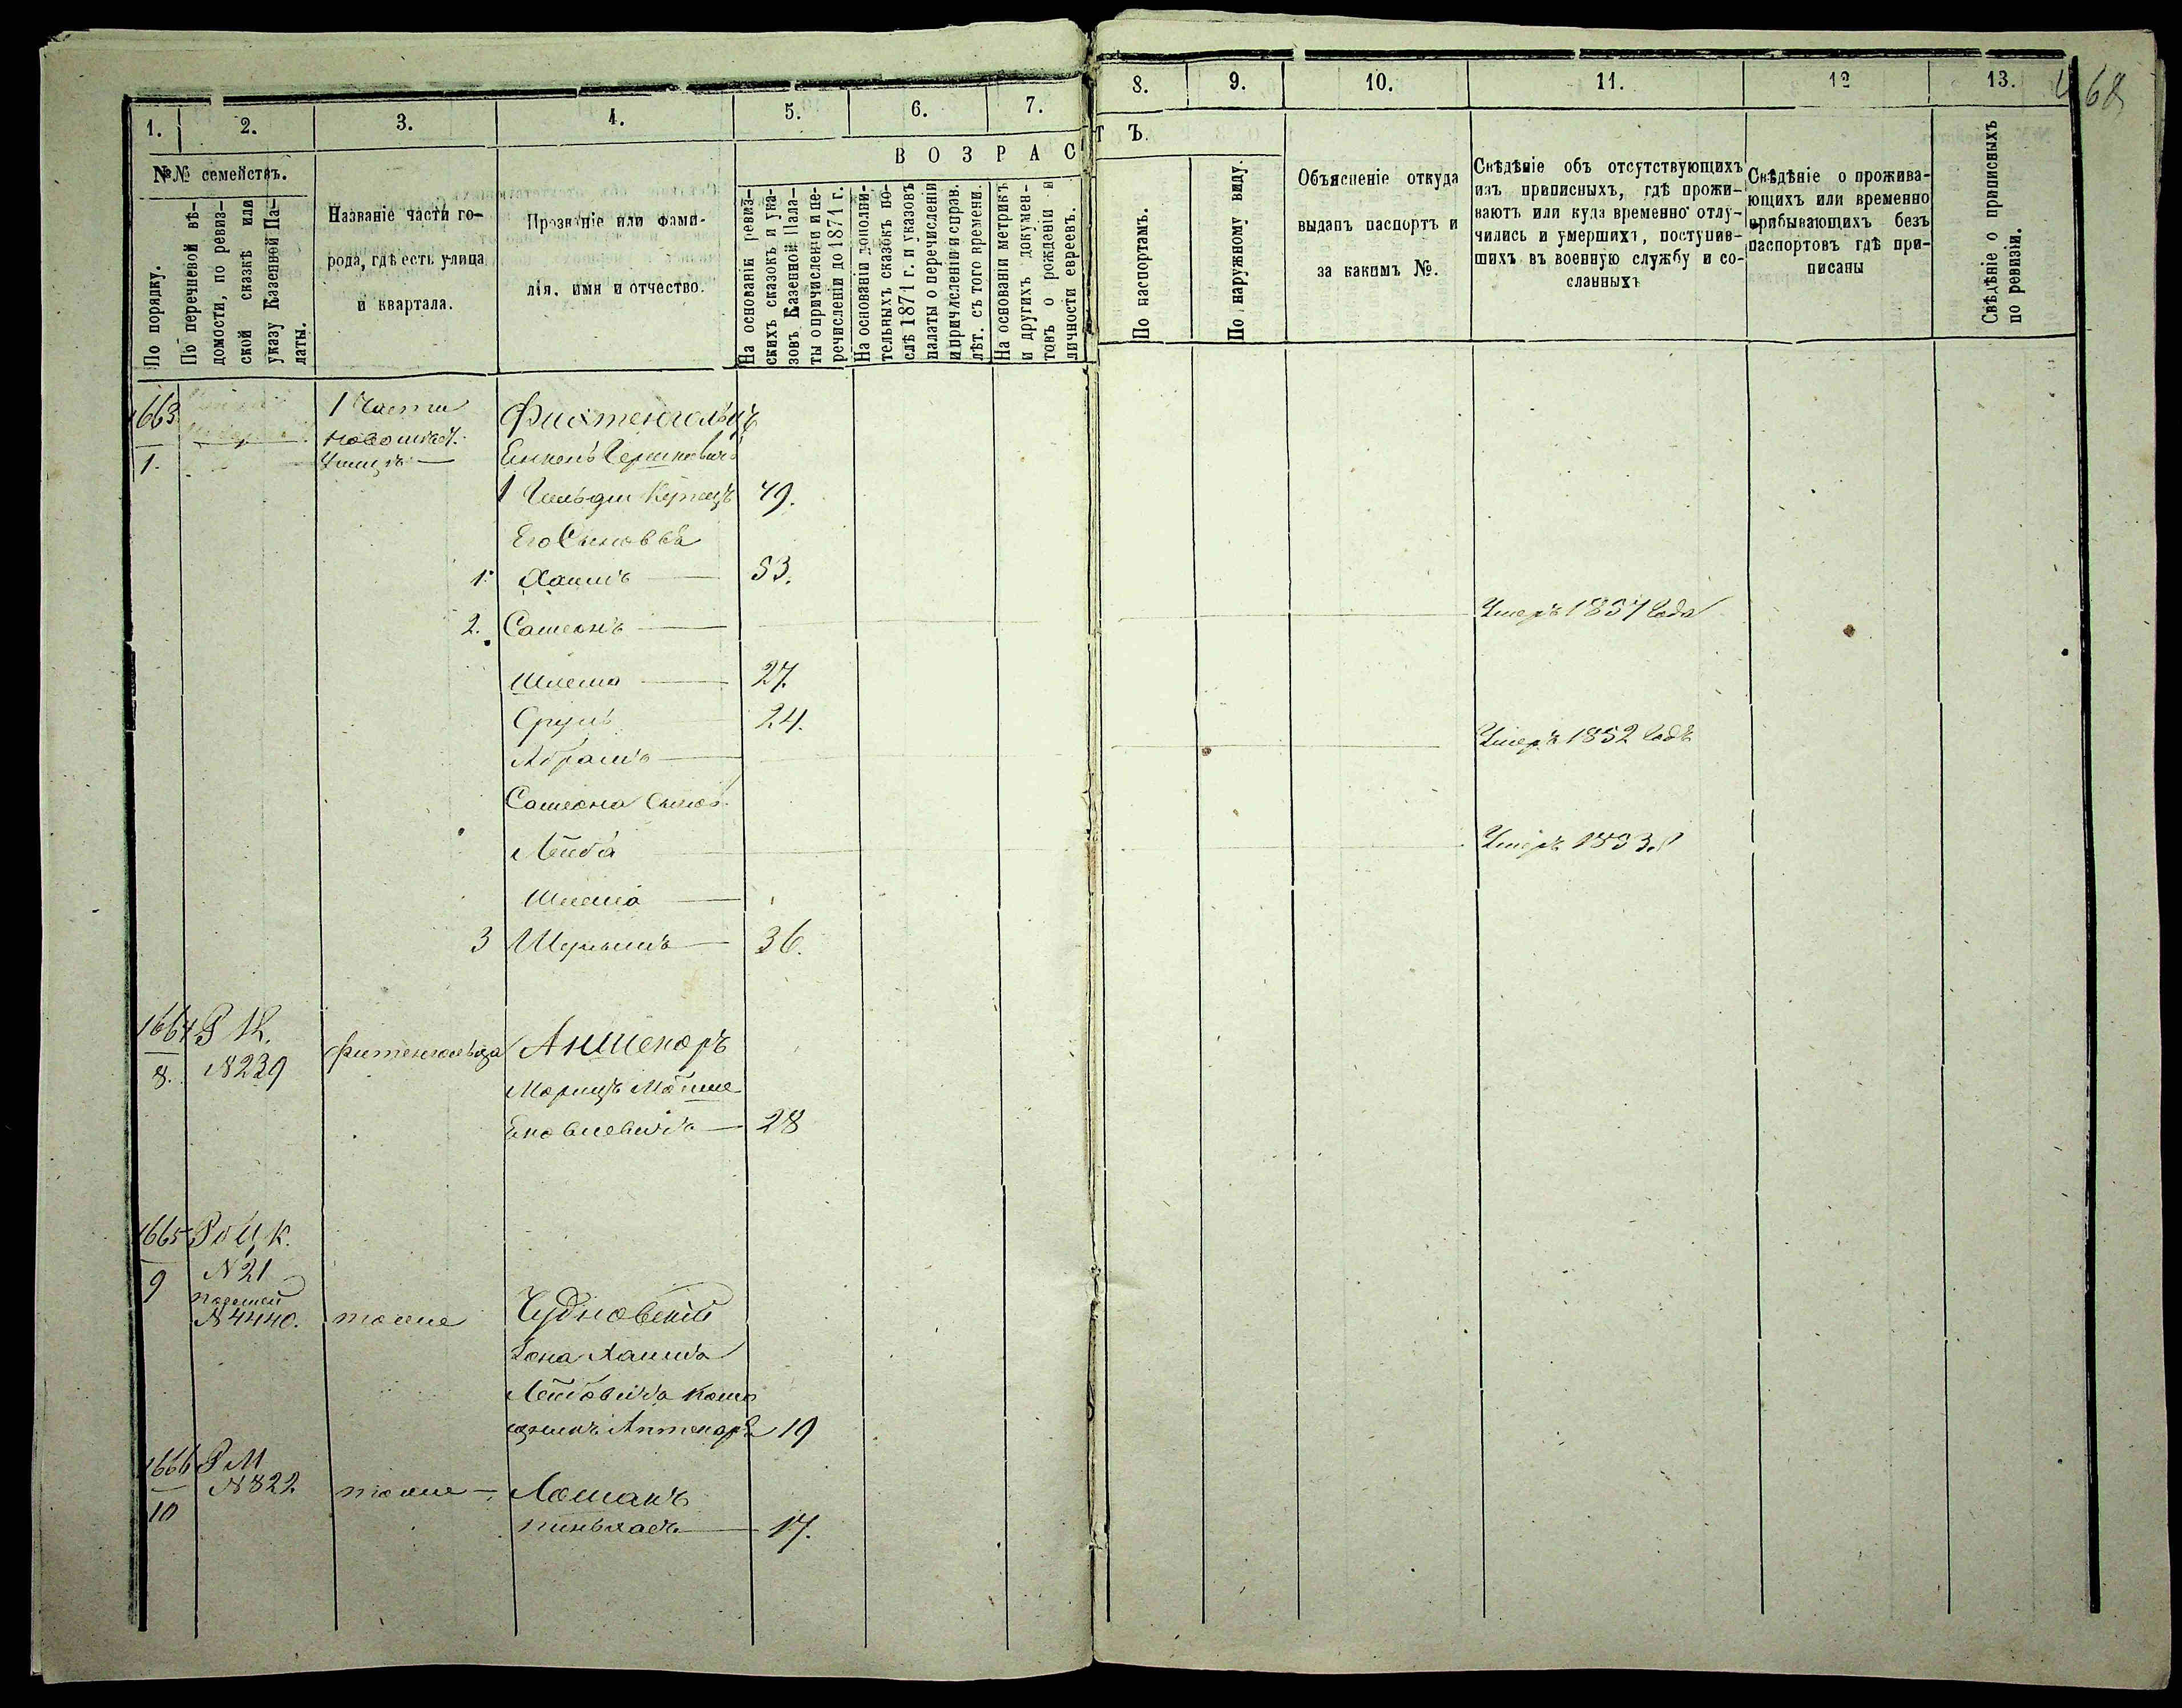 468
1.
2.
3.
4.
5.
6.
7.
8.
9.
10.
11.
12
13.
№№ семействъ.
По порядку.
По перечневой вѣ-
домости, по ревиз-
ской сказкѣ или
указу Казенной Па-
латы.
Названіе части го-
рода, гдѣ есть улица
и квартала.
Прозваніе или фами-
лія, имя и отчество.
ВОЗРАС
ТЪ.
На основаніи ревиз-
скихъ сказокъ и ука-
зовъ Казенной Пала-
ты о причисленіи и пе-
речисленіи до 1871 г.
На основаніи дополни-
тельныхъ сказокъ по-
слѣ 1871 г. и указовъ
палаты о перечисленіи
и причисленіи и справ.
лѣт. съ того времени.
На основаніи метрикъ
и другихъ докумен-
товъ о рожденіи и
личности евреевъ.
По паспортамъ.
По наружному виду.
Объясненіе откуда
выданъ паспортъ и
за какимъ №.
Свѣдѣніе объ отсутствующихъ
изъ приписныхъ, гдѣ прожи-
ваютъ или куда временно отлу-
чились и умершихъ, поступив-
шихъ въ военную службу и со-
сланныхъ
Свѣдѣніе о прожива-
ющихъ или временно
прибывающихъ безъ
паспортовъ гдѣ при-
писаны
Свѣдѣніе о приписныхъ
по ревизіи.
1663
1.
1 Части
Фихтенгольцъ
Гершковичъ
1 Гильдіи Купецъ 49.
Его Сыновья
1. Хаимъ — 53.
2. Самсонъ — Умеръ 1857 года
Шлема — 27.
Срулъ 24.
Абрамъ — Умеръ 1852 годѣ
Самсона Сынов.
Лейба
Шлема —
3 — 36.
1664
8.
Р К.
№ 239
Фихтенгольца
Мошце
Яковлевичъ — 28
1665
9
№ 21
№ 4440.
тоже
Чудновскій
Іона Хаимъ
Лейбовичъ
Аптекаръ 19
1666
10
Р М
№ 822
тоже —
Лошакъ
Пинхасъ — 17.